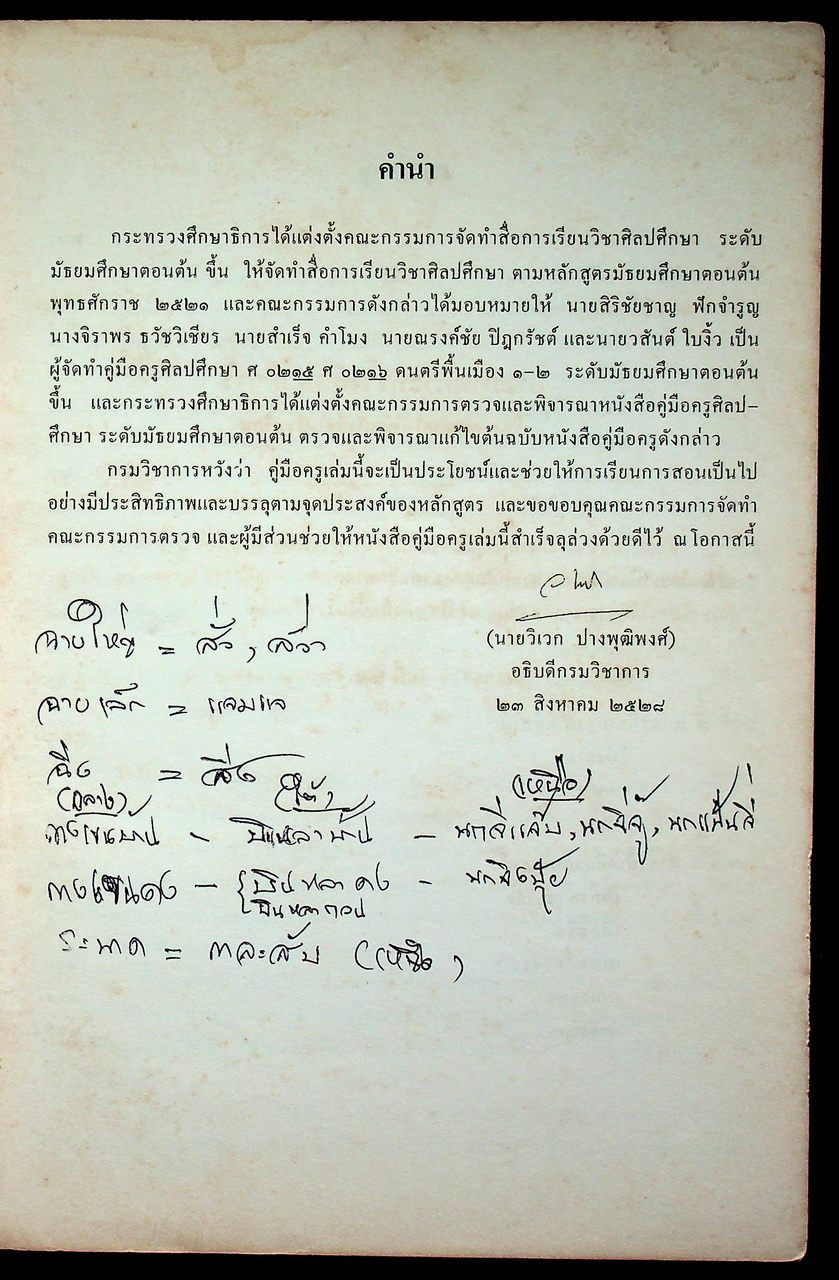 คำนำ
กระทรวงศึกษาธิการได้แต่งตั้งคณะกรรมการจัดทำสื่อการเรียนวิชาศิลปศึกษา ระดับ
มัธยมศึกษาตอนต้น ขึ้น ให้จัดทำสื่อการเรียนวิชาศิลปศึกษา ตามหลักสูตรมัธยมศึกษาตอนต้น
พุทธศักราช ๒๕๒๑ และคณะกรรมการดังกล่าวได้มอบหมายให้ นายสิริชัยชาญ ฟักจำรูญ
นางจิราพร ธวัชวิเชียร นายสำเร็จ คำโมง นายณรงค์ชัย ปิฎกรัชต์ และนายวสันต์ ใบงิ้ว เป็น
ผู้จัดทำคู่มือครูศิลปศึกษา ศ ๐๒๑๕ ศ ๐๒๑๖ ดนตรีพื้นเมือง ๑-๒ ระดับมัธยมศึกษาตอนต้น
ขึ้น และกระทรวงศึกษาธิการได้แต่งตั้งคณะกรรมการตรวจและพิจารณาหนังสือคู่มือครูศิลป-
ศึกษา ระดับมัธยมศึกษาตอนต้น ตรวจและพิจารณาแก้ไขต้นฉบับหนังสือคู่มือครูดังกล่าว
กรมวิชาการหวังว่า คู่มือครูเล่มนี้จะเป็นประโยชน์และช่วยให้การเรียนการสอนเป็นไป
อย่างมีประสิทธิภาพและบรรลุตามจุดประสงค์ของหลักสูตร และขอขอบคุณคณะกรรมการจัดทำ
คณะกรรมการตรวจ และผู้มีส่วนช่วยให้หนังสือคู่มือครูเล่มนี้สำเร็จลุล่วงด้วยดีไว้ ณ โอกาสนี้
(นายวิเวก ปางพุฒิพงศ์)
อธิบดีกรมวิชาการ
๒๓ สิงหาคม ๒๕๒๘
ฉาบใหญ่ =
ฉาบเล็ก =
ฉิ่ง = สิ่ง
(กลาง) (ใต้) (เหนือ)
ระนาด = (เหนือ)